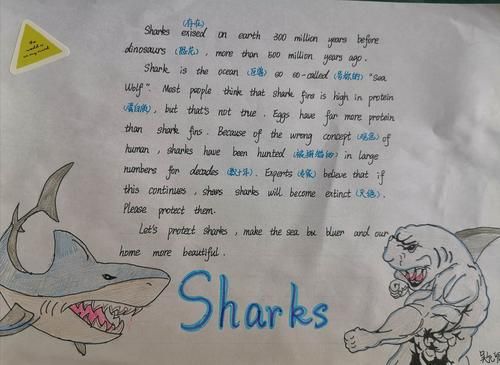 Sharks exised (存在) on earth 300 million years before
dinosaurs (恐龙), more than 500 million years ago.
Shark is the ocean so so-called "Sea
Wolf". Most people think that shark fins is high in protein
(蛋白质), but that's not true. Eggs have far more protein
than shark fins. Because of the wrong concept (观念) of
human, sharks have been hunted in large
numbers for decades (数十年). Experts (专家) believe that if
this continues, shars sharks will become extinct (灭绝).
Please protect them.
Let's protect sharks, make the sea be bluer and our
home more beautiful.
Sharks